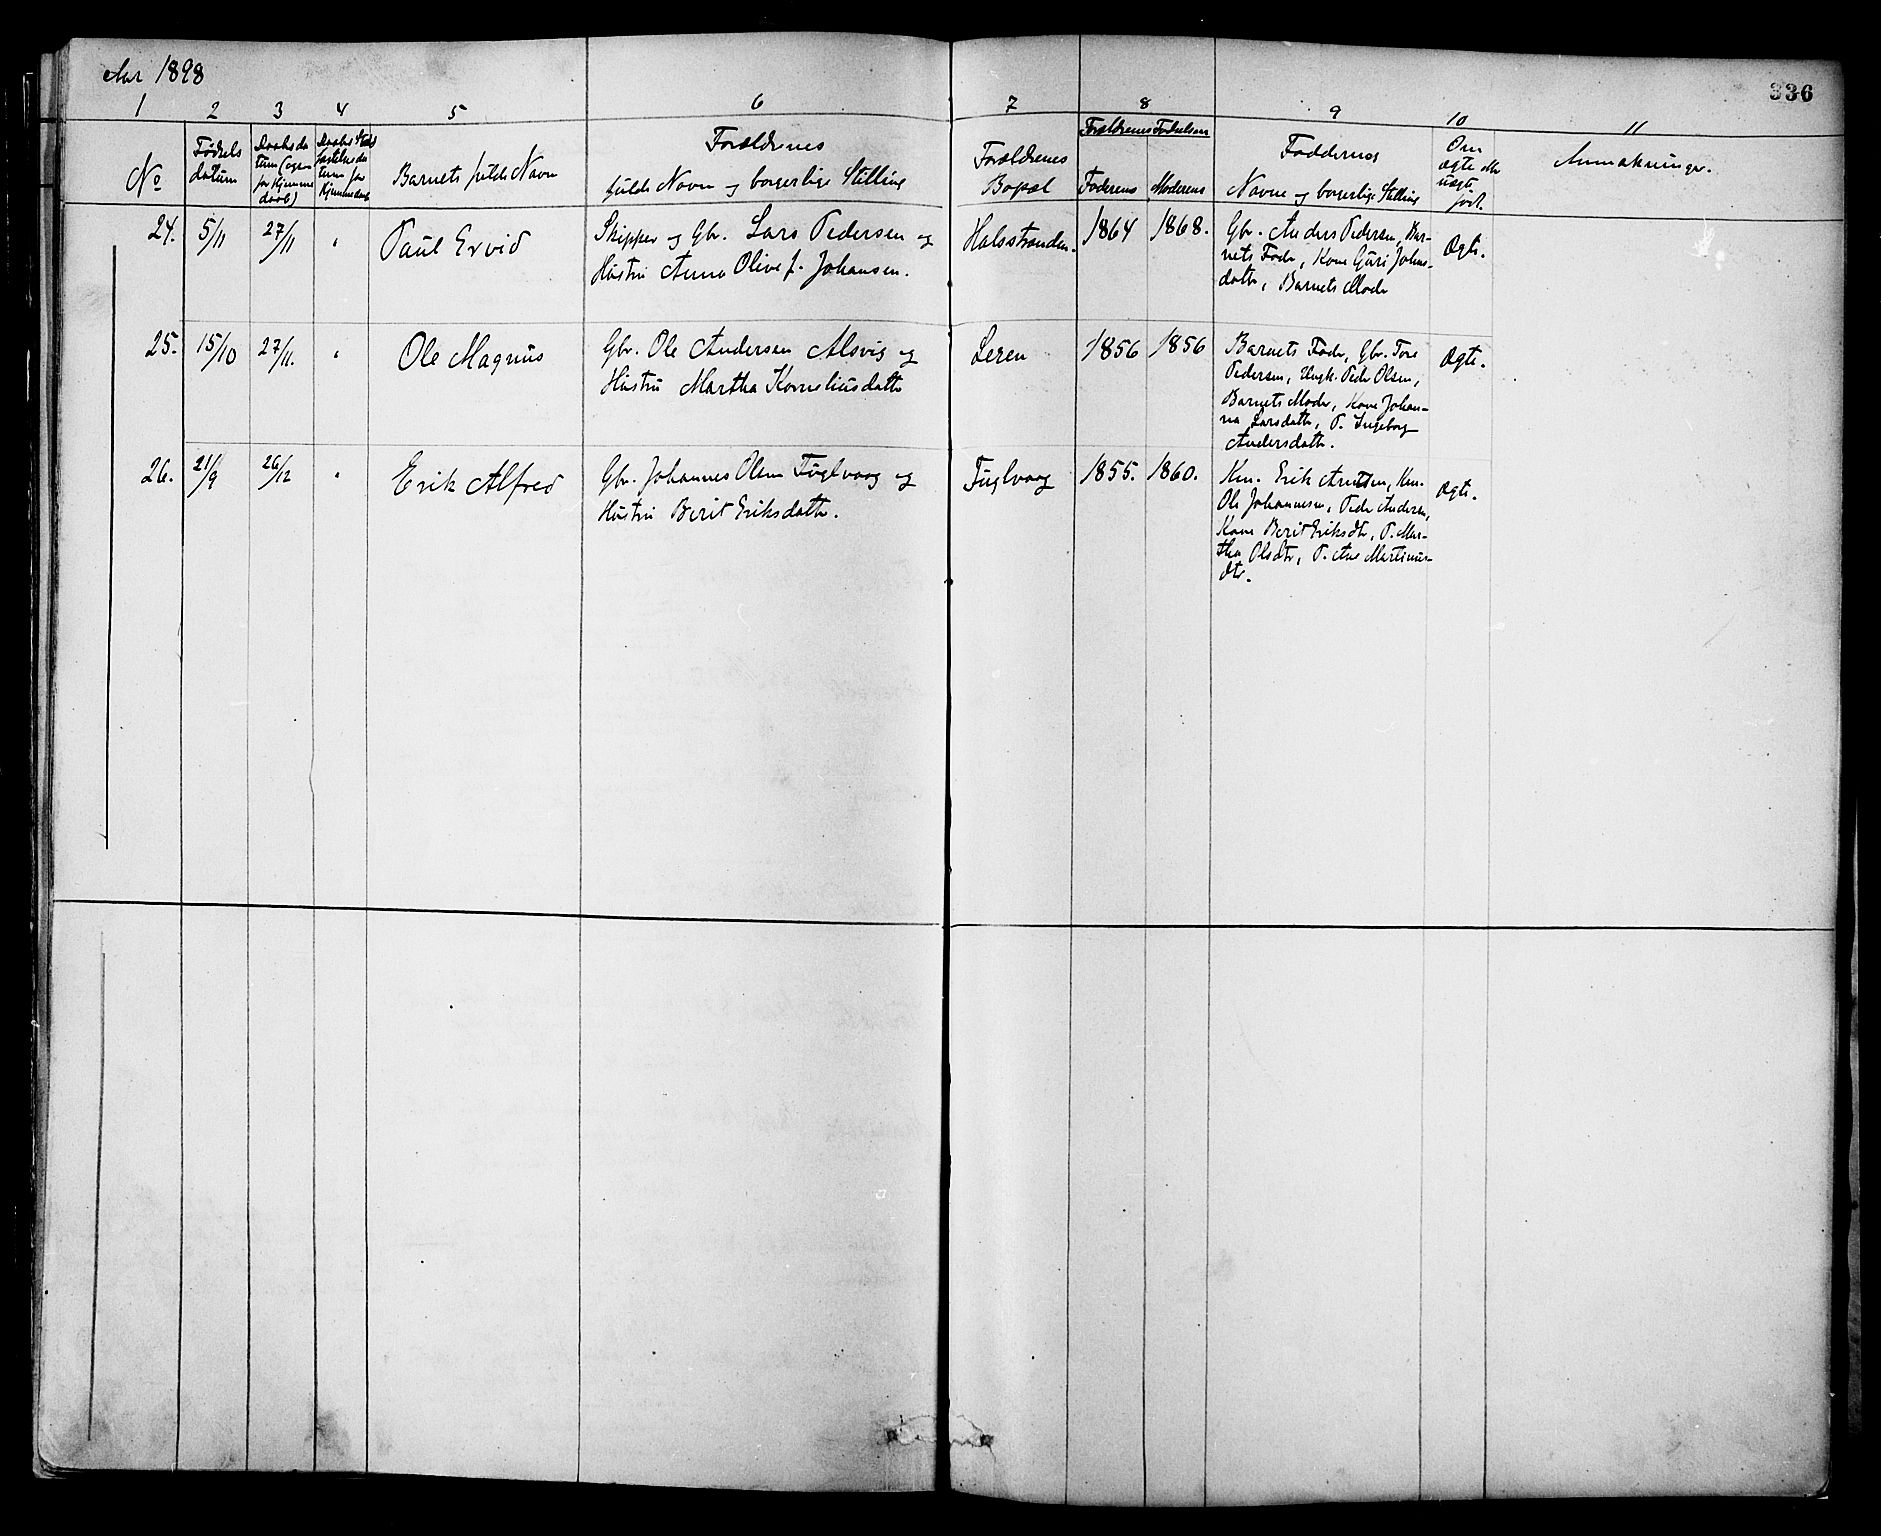 Aar 1898
336
1 2 3 4 5 6 7 8 9 10 11
No
Fødsels
datum
Daabsda
tum (ogsaa
for Hjemme
daab)
Daabs Stad
fæstelsesda
tum for
Hjemmedaab
Barnets fulde Navn
Forældrenes
fulde Navn og borgerlige Stilling
Forældrenes
Bopæl
Forældrenes Fødselsaar
Faderens Moderens
Faddernes
Navne og borgerlige Stilling
Om
ægte eller
uægte
født.
Anmærkninger.
24. 5/11 27/11 "
Paul Ervid
Skipper og Gbr. Lars Pedersen og
Hustru Anna Olive f. Johansen.
Halsstranden.
1864 1868.
Gbr. Anders Pedersen, Bar-
nets Fader, Kone Guri Johns-
datter, Barnets Moder
Ægte.
25. 15/10 27/11. "
Ole Magnus
Gbr. Ole Andersen Alsvig og
Hustru Martha Korneliusdatter
Leren
1856 1856
Barnets Fader, Gbr. Tore
Pedersen, Ungk. Peder Olsen,
Barnets Moder, Kone Johan-
na Larsdatter, P. Ingeborg
Andersdatter.
Ægte.
26. 21/9 26/12 "
Erik Alfred
Gbr. Johannes Olsen Fuglvaag og
Hustru Berit Eriksdatter.
Fuglvaag
1855. 1860.
Km. Erik Arntsen, Km.
Ole Johannesen, Peder Andersen,
Kone Berit Eriksdtr, P. Mar-
tha Olsdtr, P. Ane Martinus-
dtr.
Ægte.